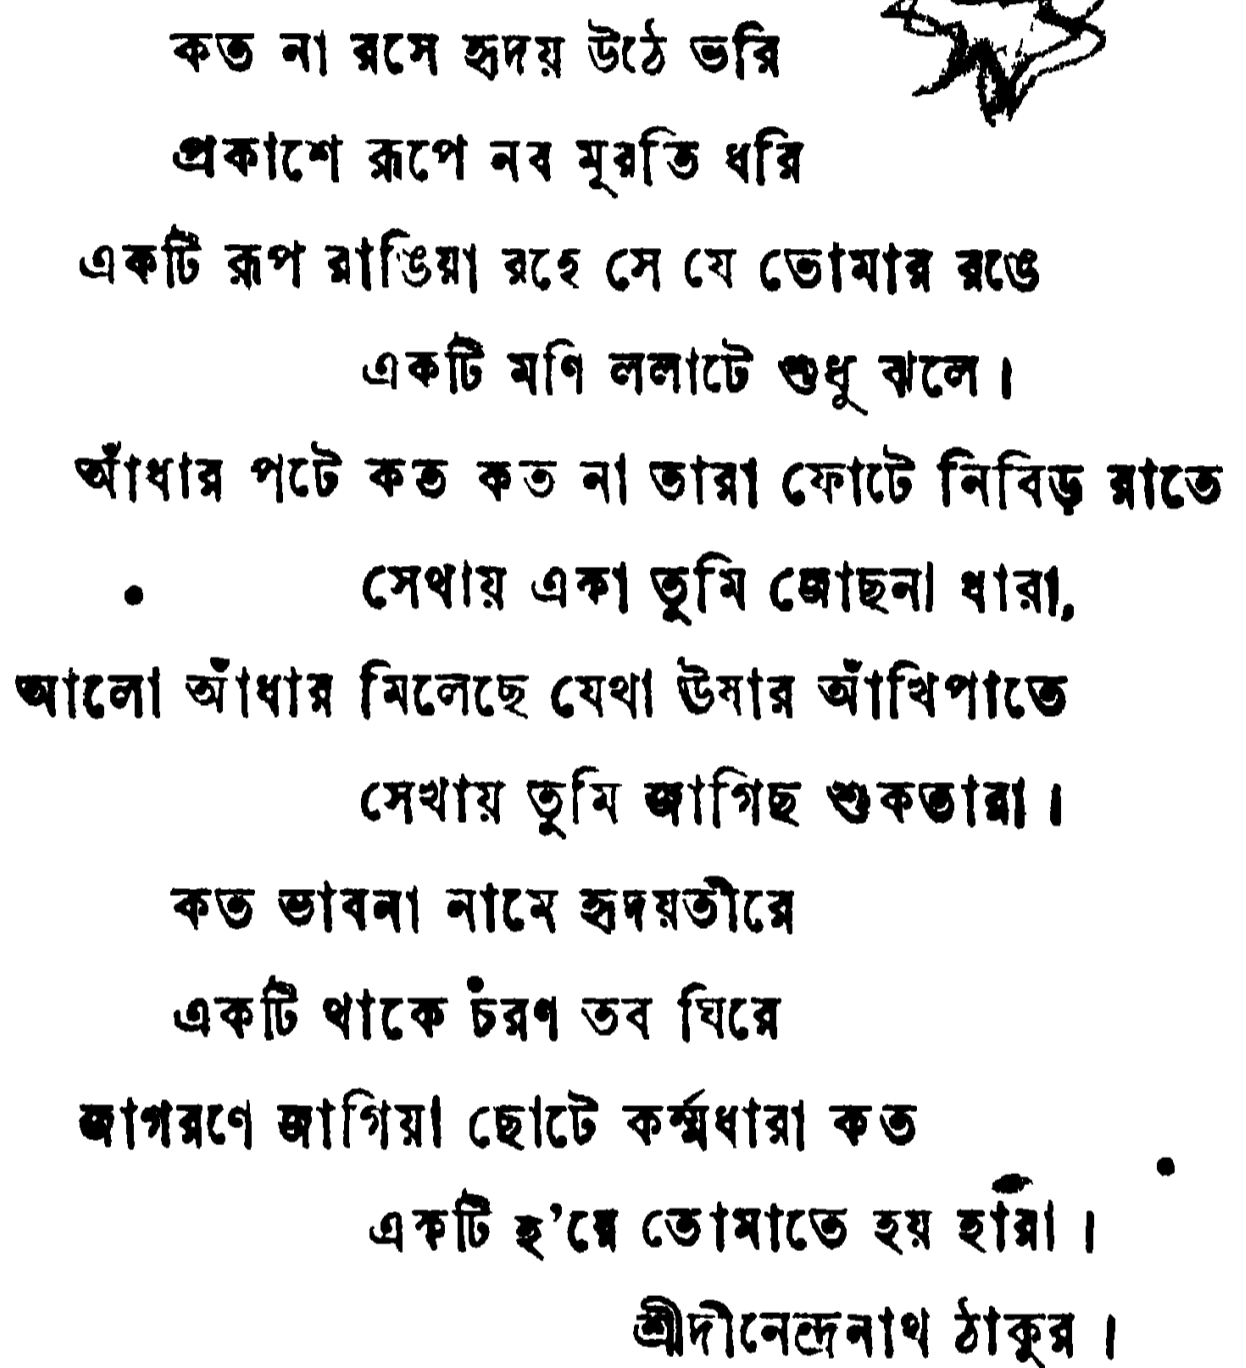 কত না রসে হৃদয় উঠে ভরি
প্রকাশে রূপে নব মূরতি ধরি
একটি রূপ রাঙিয়া রহে সে যে তোমার রঙে
একটি মণি ললাটে শুধু ঝলে।
আঁধার পটে কত কত না তারা ফোটে নিবিড় রাতে
সেথায় একা তুমি জোছনা ধারা,
আলো আঁধার মিলেছে যেথা ঊষার আঁখিপাতে
সেখায় তুমি জাগিছ শুকতারা।
কত ভাবনা নামে হৃদয়তীরে
একটি থাকে চরণ তব ঘিরে
জাগরণে জাগিয়া ছোটে কর্ম্মধারা কত
একটি হ'য়ে তোমাতে হয় হারা।
শ্রীদীনেন্দ্রনাথ ঠাকুর।